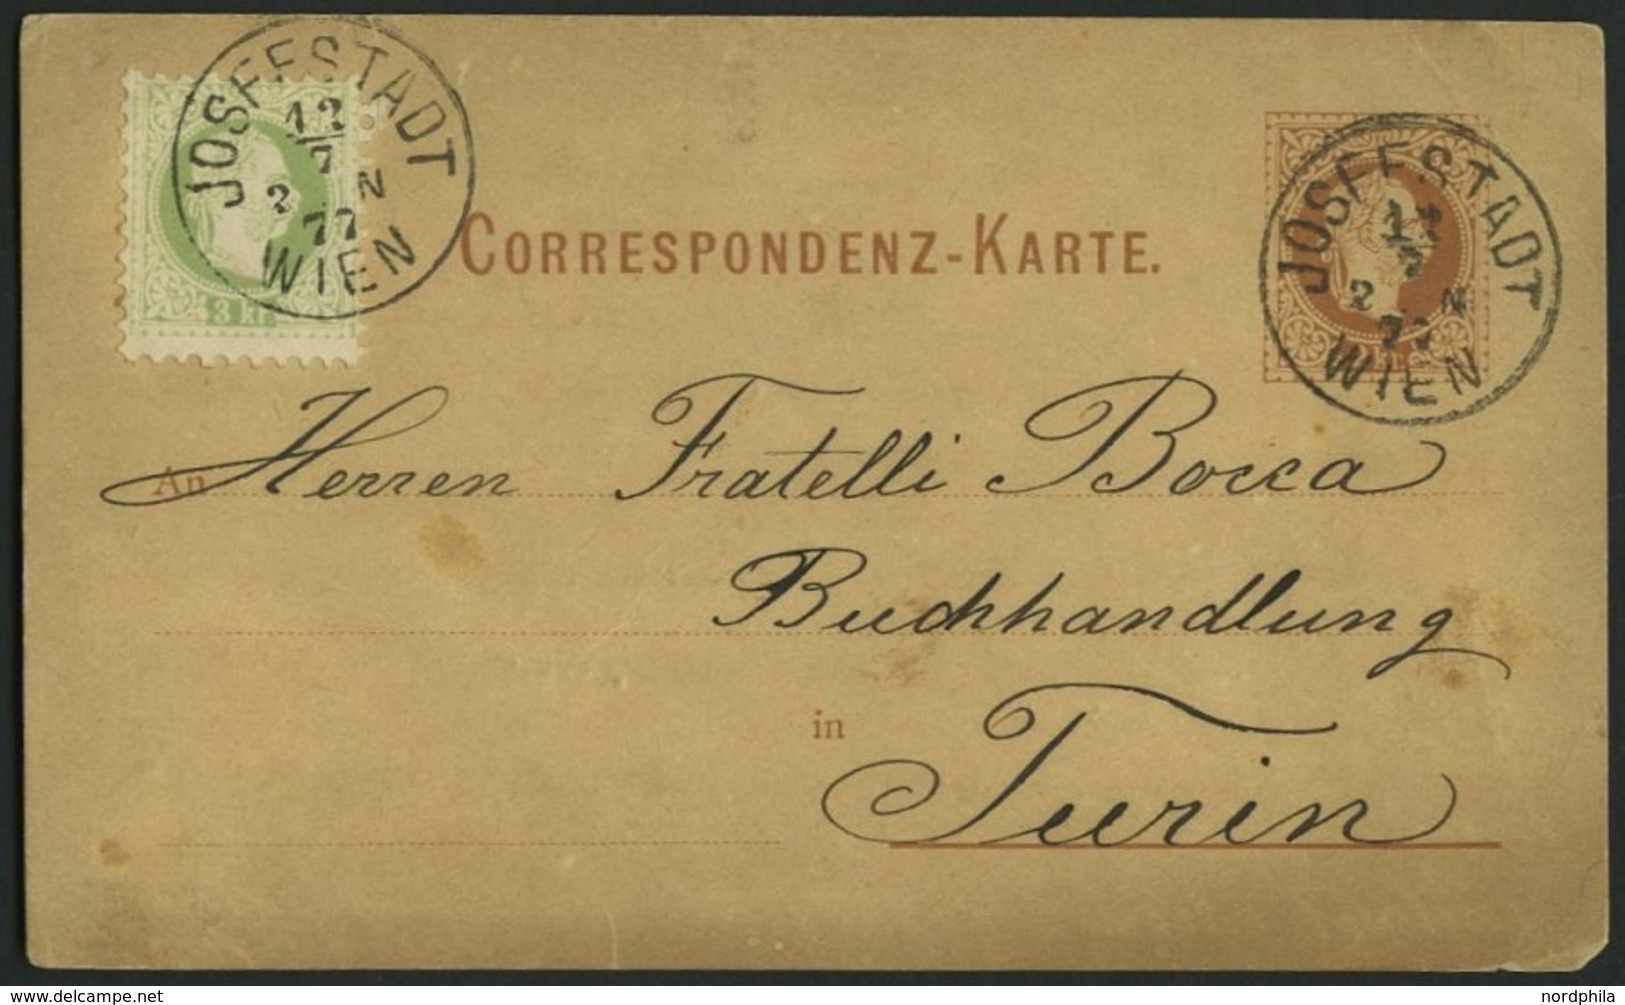 JOSEFSTADT
12
7
2 N
77
WIEN
3 kr.
CORRESPONDENZ-KARTE.
JOSEFSTADT
2 N
WIEN
kr.
An Herren Fratelli Bocca
Buchhandlung
in Turin
www.delcampe.net
nordphila